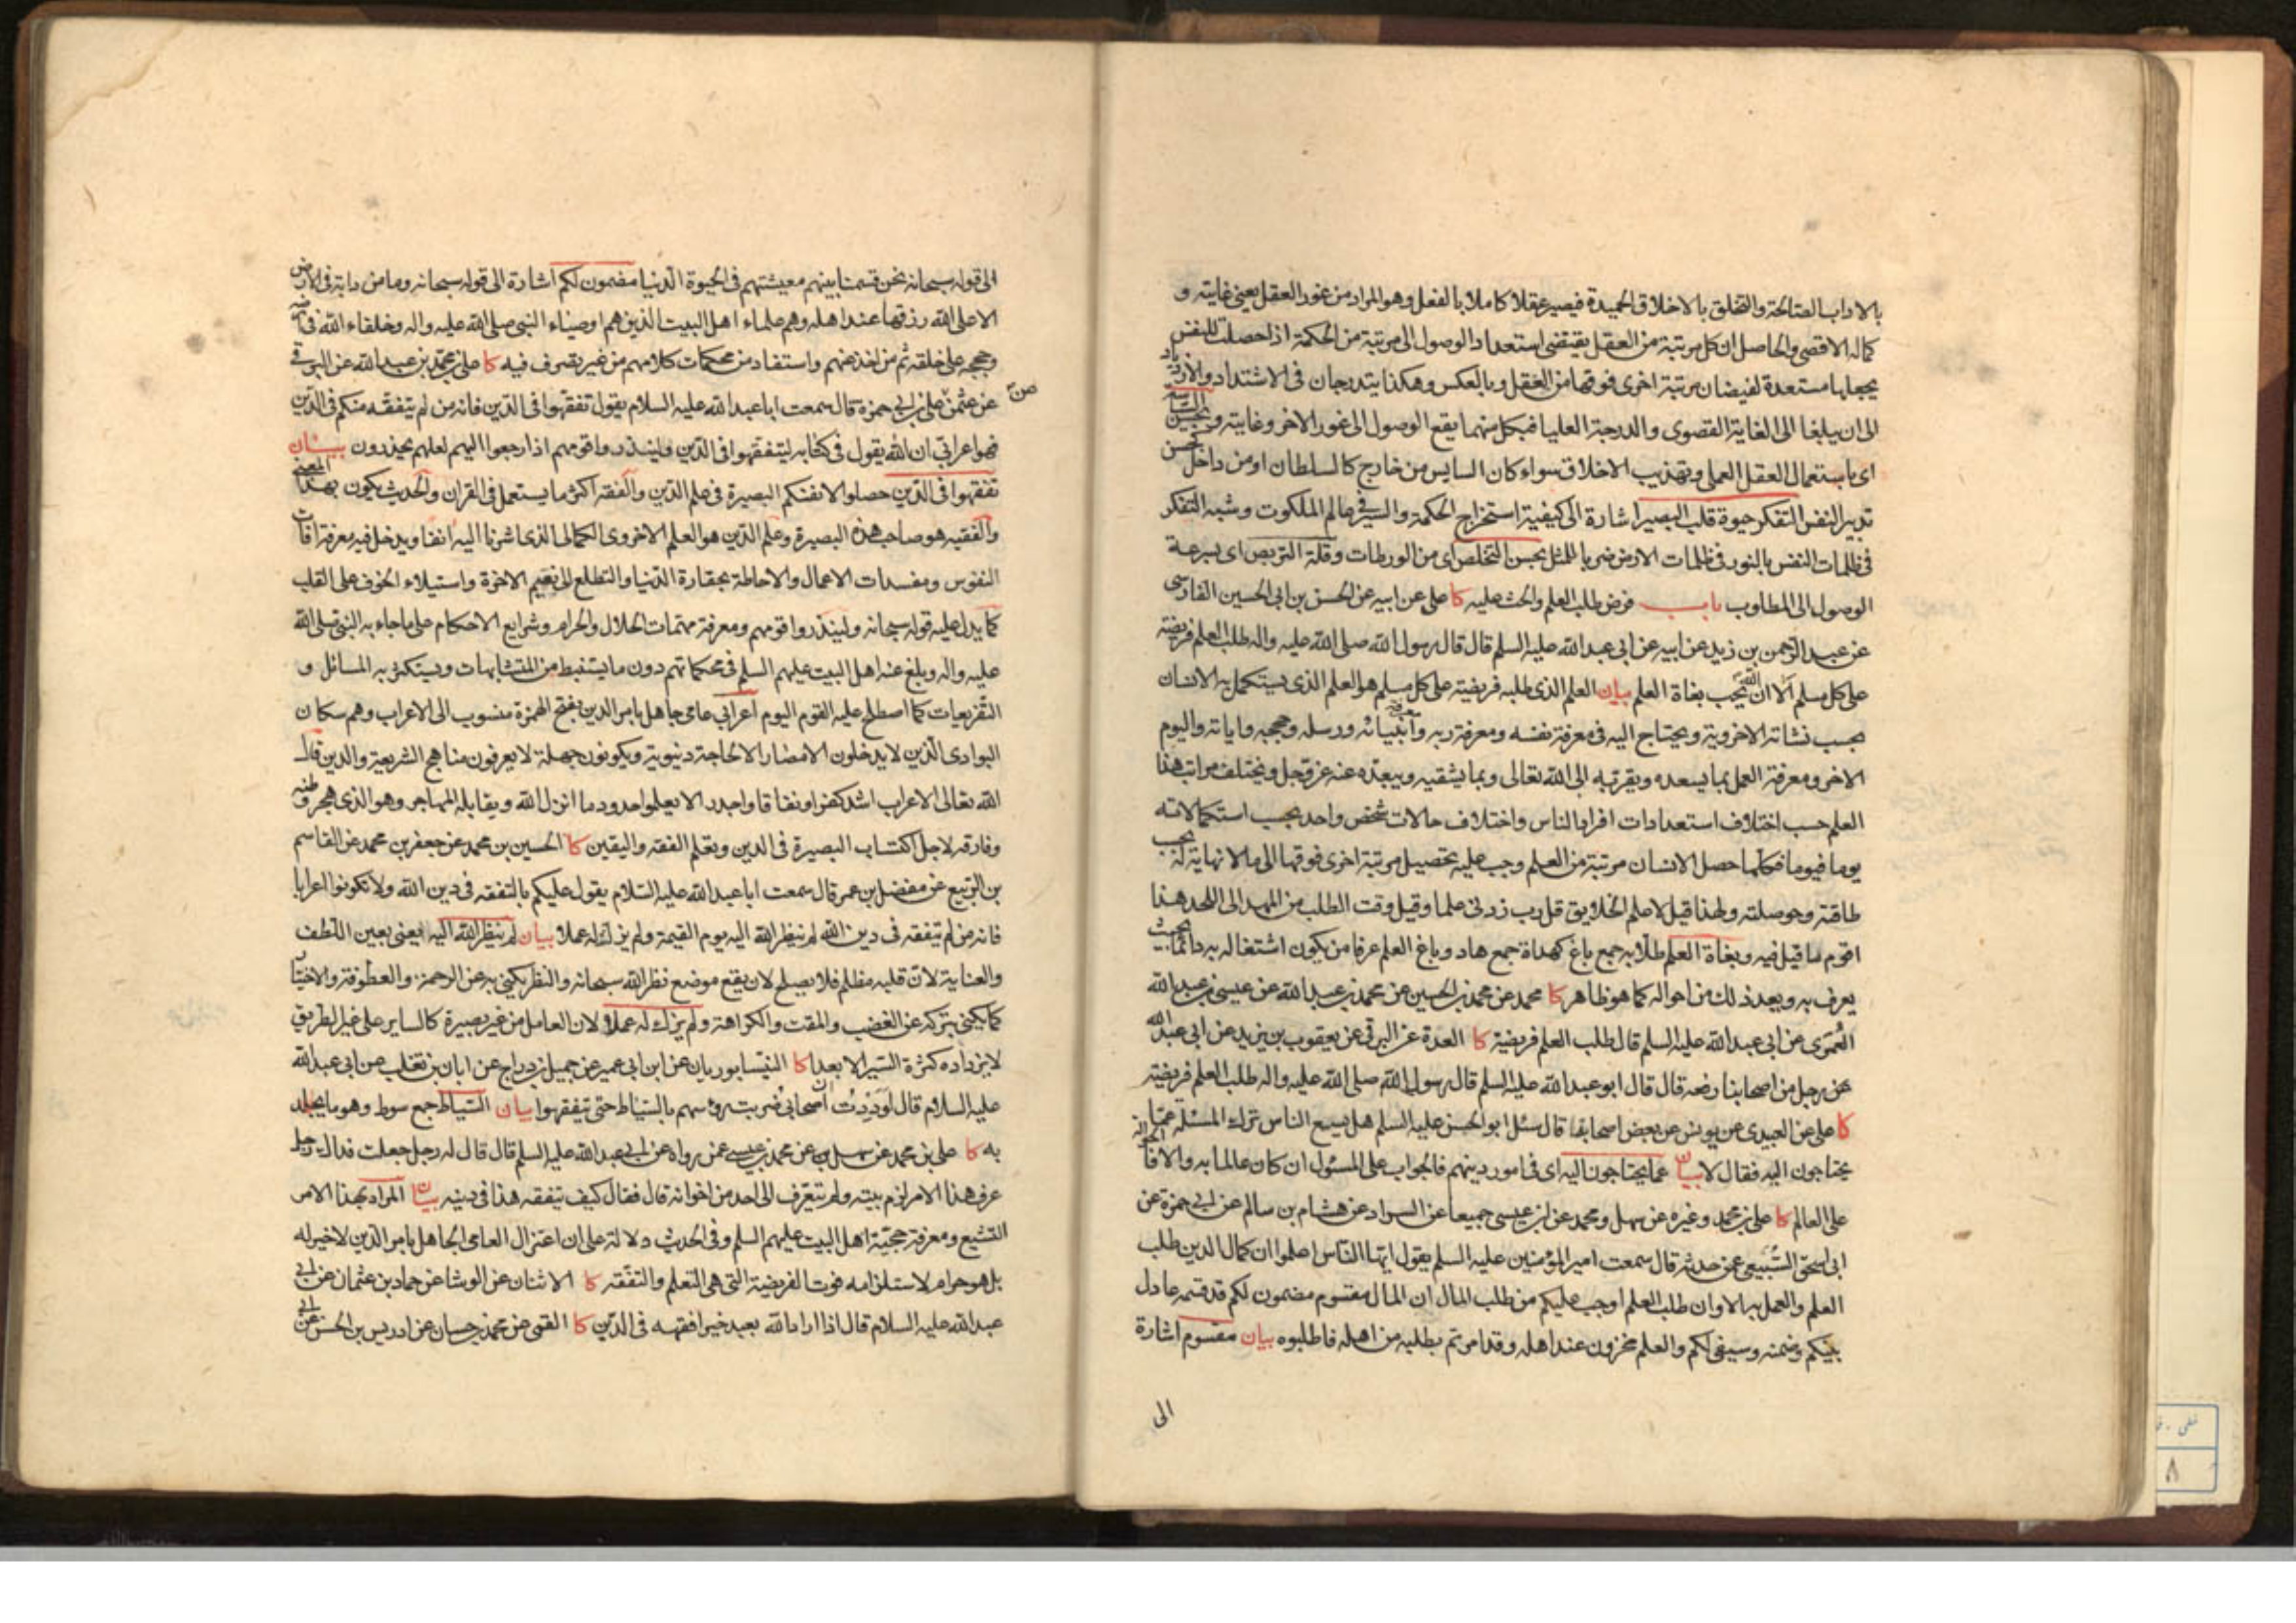 بالاداب الصالحة والتخلق بالاخلاق الحميدة فيصير عقلا كاملا بالفعل وهو المراد من غور العقل يعني غايته و
كماله الاقصى والحاصل ان كل مرتبة من العقل يقتضي استعداد الوصول الى مرتبة من الحكمة اذا حصلت للنفس
يجعلها مستعدة لفيضان مرتبة اخرى فوقها من العقل وبالعكس وهكذا يتدرجان في الاشتداد والازدياد
الى ان يبلغا الى الغاية القصوى والدرجة العليا فبكل منهما يقع الوصول الى غور الاخر وغايته وبحسن السياسة
اى باستعمال العقل العملى وتهذيب الاخلاق سواء كان السايس من خارج كالسلطان او من داخل كحسن
تدبير النفس التفكر حيوة قلب البصير اشارة الى كيفية استخراج الحكمة والسير في عالم الملكوت وشبه التفكر
في ظلمات النفس بالنور في ظلمات الارض ضربا للمثل بحسن التخلص اى من الورطات وقلة التربص اى بسرعة
الوصول الى المطلوب باب فرض طلب العلم والحث عليه كا على عن ابيه عن الحسن بن ابى الحسين الفارسى
عن عبد الرحمن بن زيد عن ابيه عن ابى عبد الله عليه السلم قال قال رسول الله صلى الله عليه واله طلب العلم فريضة
على كل مسلم ألا ان الله يحب بغاة العلم بيان العلم الذى طلبه فريضة على كل مسلم هو العلم الذى يستكمل به الانسان
بحسب نشاته الاخروية ويحتاج اليه في معرفة نفسه ومعرفة ربه ومعرفة أنبيائه ورسله وحججه واياته واليوم
الاخر ومعرفة العمل بما يسعده ويقربه الى الله تعالى وبما يشقيه ويبعده عنه عز وجل ويختلف مراتب هذا
العلم حسب اختلاف استعدادات افراد الناس واختلاف حالات شخص واحد بحسب استكمالاته
يوما فيوما فكلما حصل الانسان مرتبة من العلم وجب عليه تحصيل مرتبة اخرى فوقها الى ما لا نهاية له بحسب
طاقته وحوصلته ولهذا قيل لاعلم الخلايق قل رب زدنى علما وقيل وقت الطلب من المهد الى اللحد هذا
اقوم ما قيل فيه وبغاة العلم طلابه جمع باغ كهداة جمع هاد وباغ العلم عرفا من يكون اشتغاله به دائما بحيث
يعرف به ويعد ذلك من احواله كما هو ظاهر كا محمد عن محمد بن الحسين عن محمد بن عبد الله عن عيسى بن عبد الله
العمرى عن ابى عبد الله عليه السلم قال طلب العلم فريضة كا العدة عن البرقى عن يعقوب بن يزيد عن ابى عبد الله
عن رجل من اصحابنا رفعه قال قال ابو عبد الله عليه السلم قال رسول الله صلى الله عليه واله طلب العلم فريضة
كا على عن العبيدى عن يونس عن بعض اصحابنا قال سئل ابو الحسن عليه السلم هل يسع الناس ترك المسئلة عما
يحتاجون اليه فقال لا بيان عما يحتاجون اليه اى في امور دينهم فالجواب على المسئول ان كان عالما به والا فالحوالة
على العالم كا على بن محمد وغيره عن سهل ومحمد عن ابن عيسى جميعا عن السراد عن هشام بن سالم عن ابى حمزة عن
ابى اسحق السبيعى عمن حدثه قال سمعت امير المؤمنين عليه السلم يقول ايها الناس اعلموا ان كمال الدين طلب
العلم والعمل به الا وان طلب العلم اوجب عليكم من طلب المال ان المال مقسوم مضمون لكم قد قسمه عادل
بينكم وضمنه وسيفى لكم والعلم مخزون عند اهله وقد امرتم بطلبه من اهله فاطلبوه بيان مقسوم اشارة
الى
الى قوله سبحانه نحن قسمنا بينهم معيشتهم في الحيوة الدنيا مضمون لكم اشارة الى قوله سبحانه وما من دابة في الارض
الا على الله رزقها عند اهله وهم علماء اهل البيت الذين هم اوصياء النبى صلى الله عليه واله وخلفاء الله في ارضه
وحججه على خلقه ثم من اخذ عنهم واستفاد من محكمات كلامهم من غير تصرف فيه كا على بن محمد بن عبد الله عن البرقى
عن عثمن عن على بن ابى حمزة قال سمعت ابا عبد الله عليه السلام يقول تفقهوا في الدين فانه من لم يتفقه منكم في الدين
فهو اعرابي ان الله يقول في كتابه ليتفقهوا في الدين ولينذروا قومهم اذا رجعوا اليهم لعلهم يحذرون بيان
تفقهوا في الدين حصلوا لانفسكم البصيرة في علم الدين والفقه اكثر ما يستعمل في القران والحديث يكون بهذا المعنى
والفقيه هو صاحب هذه البصيرة وعلم الدين هو العلم الاخروى الكمالى الذى اشرنا اليه انفا ويدخل فيه معرفة افات
النفوس ومفسدات الاعمال والاحاطة بحقارة الدنيا والتطلع الى نعيم الاخرة واستيلاء الخوف على القلب
كما يدل عليه قوله سبحانه ولينذروا قومهم ومعرفة مهمات الحلال والحرام وشرايع الاحكام على ما جاء به النبى صلى الله
عليه واله وبلغ عنه اهل البيت عليهم السلم في محكماتهم دون ما يستنبط من المتشابهات ويستكثر به المسائل و
التفريعات كما اصطلح عليه القوم اليوم اعرابي عامى جاهل بامر الدين بفتح الهمزة منسوب الى الاعراب وهم سكان
البوادى الذين لا يدخلون الامصار الا لحاجة دنيوية ويكونون جهلة لا يعرفون مناهج الشريعة والدين قال
الله تعالى الاعراب اشد كفرا ونفاقا واجدر الا يعلموا حدود ما انزل الله ويقابله المهاجر وهو الذى هجر وطنه
وفارقه لاجل اكتساب البصيرة في الدين وتعلم الفقه واليقين كا الحسين بن محمد عن جعفر بن محمد عن القاسم
بن الربيع عن مفضل بن عمر قال سمعت ابا عبد الله عليه السلام يقول عليكم بالتفقه في دين الله ولا تكونوا اعرابا
فانه من لم يتفقه في دين الله لم ينظر الله اليه يوم القيمة ولم يزك له عملا بيان لم ينظر الله اليه يعنى بعين اللطف
والعناية لان قلبه مظلم فلا يصلح لان يقع موضع نظر الله سبحانه والنظر يكنى به عن الرحمة والعطوفة والاختيار
كما يكنى بتركه عن الغضب والمقت والكراهة ولم يزك له عملا لان العامل من غير بصيرة كالساير على غير الطريق
لا يزداده كثرة السير الا بعدا كا النيسابوريان عن ابن ابى عمير عن جميل بن دراج عن ابان بن تغلب عن ابى عبد الله
عليه السلام قال لوددت ان اصحابى ضربت رؤسهم بالسياط حتى يتفقهوا بيان السياط جمع سوط وهو ما يجلد
به كا على بن محمد عن سهل عن محمد بن عيسى عمن رواه عن ابى عبد الله عليه السلم قال قال له رجل جعلت فداك رجل
عرف هذا الامر لزم بيته ولم يتعرف الى احد من اخوانه قال فقال كيف يتفقه هذا في دينه بيان المراد بهذا الامر
التشيع ومعرفة حجية اهل البيت عليهم السلم وفي الحديث دلالة على ان اعتزال العامى الجاهل بامر الدين لا خير له
بل هو حرام لاستلزامه فوت الفريضة التى هى التعلم والتفقه كا الاثنان عن الوشا عن حماد بن عثمان عن ابى
عبد الله عليه السلام قال اذا اراد الله بعبد خيرا فقهه في الدين كا القمى عن محمد بن حسان عن ادريس بن الحسن عن ابى